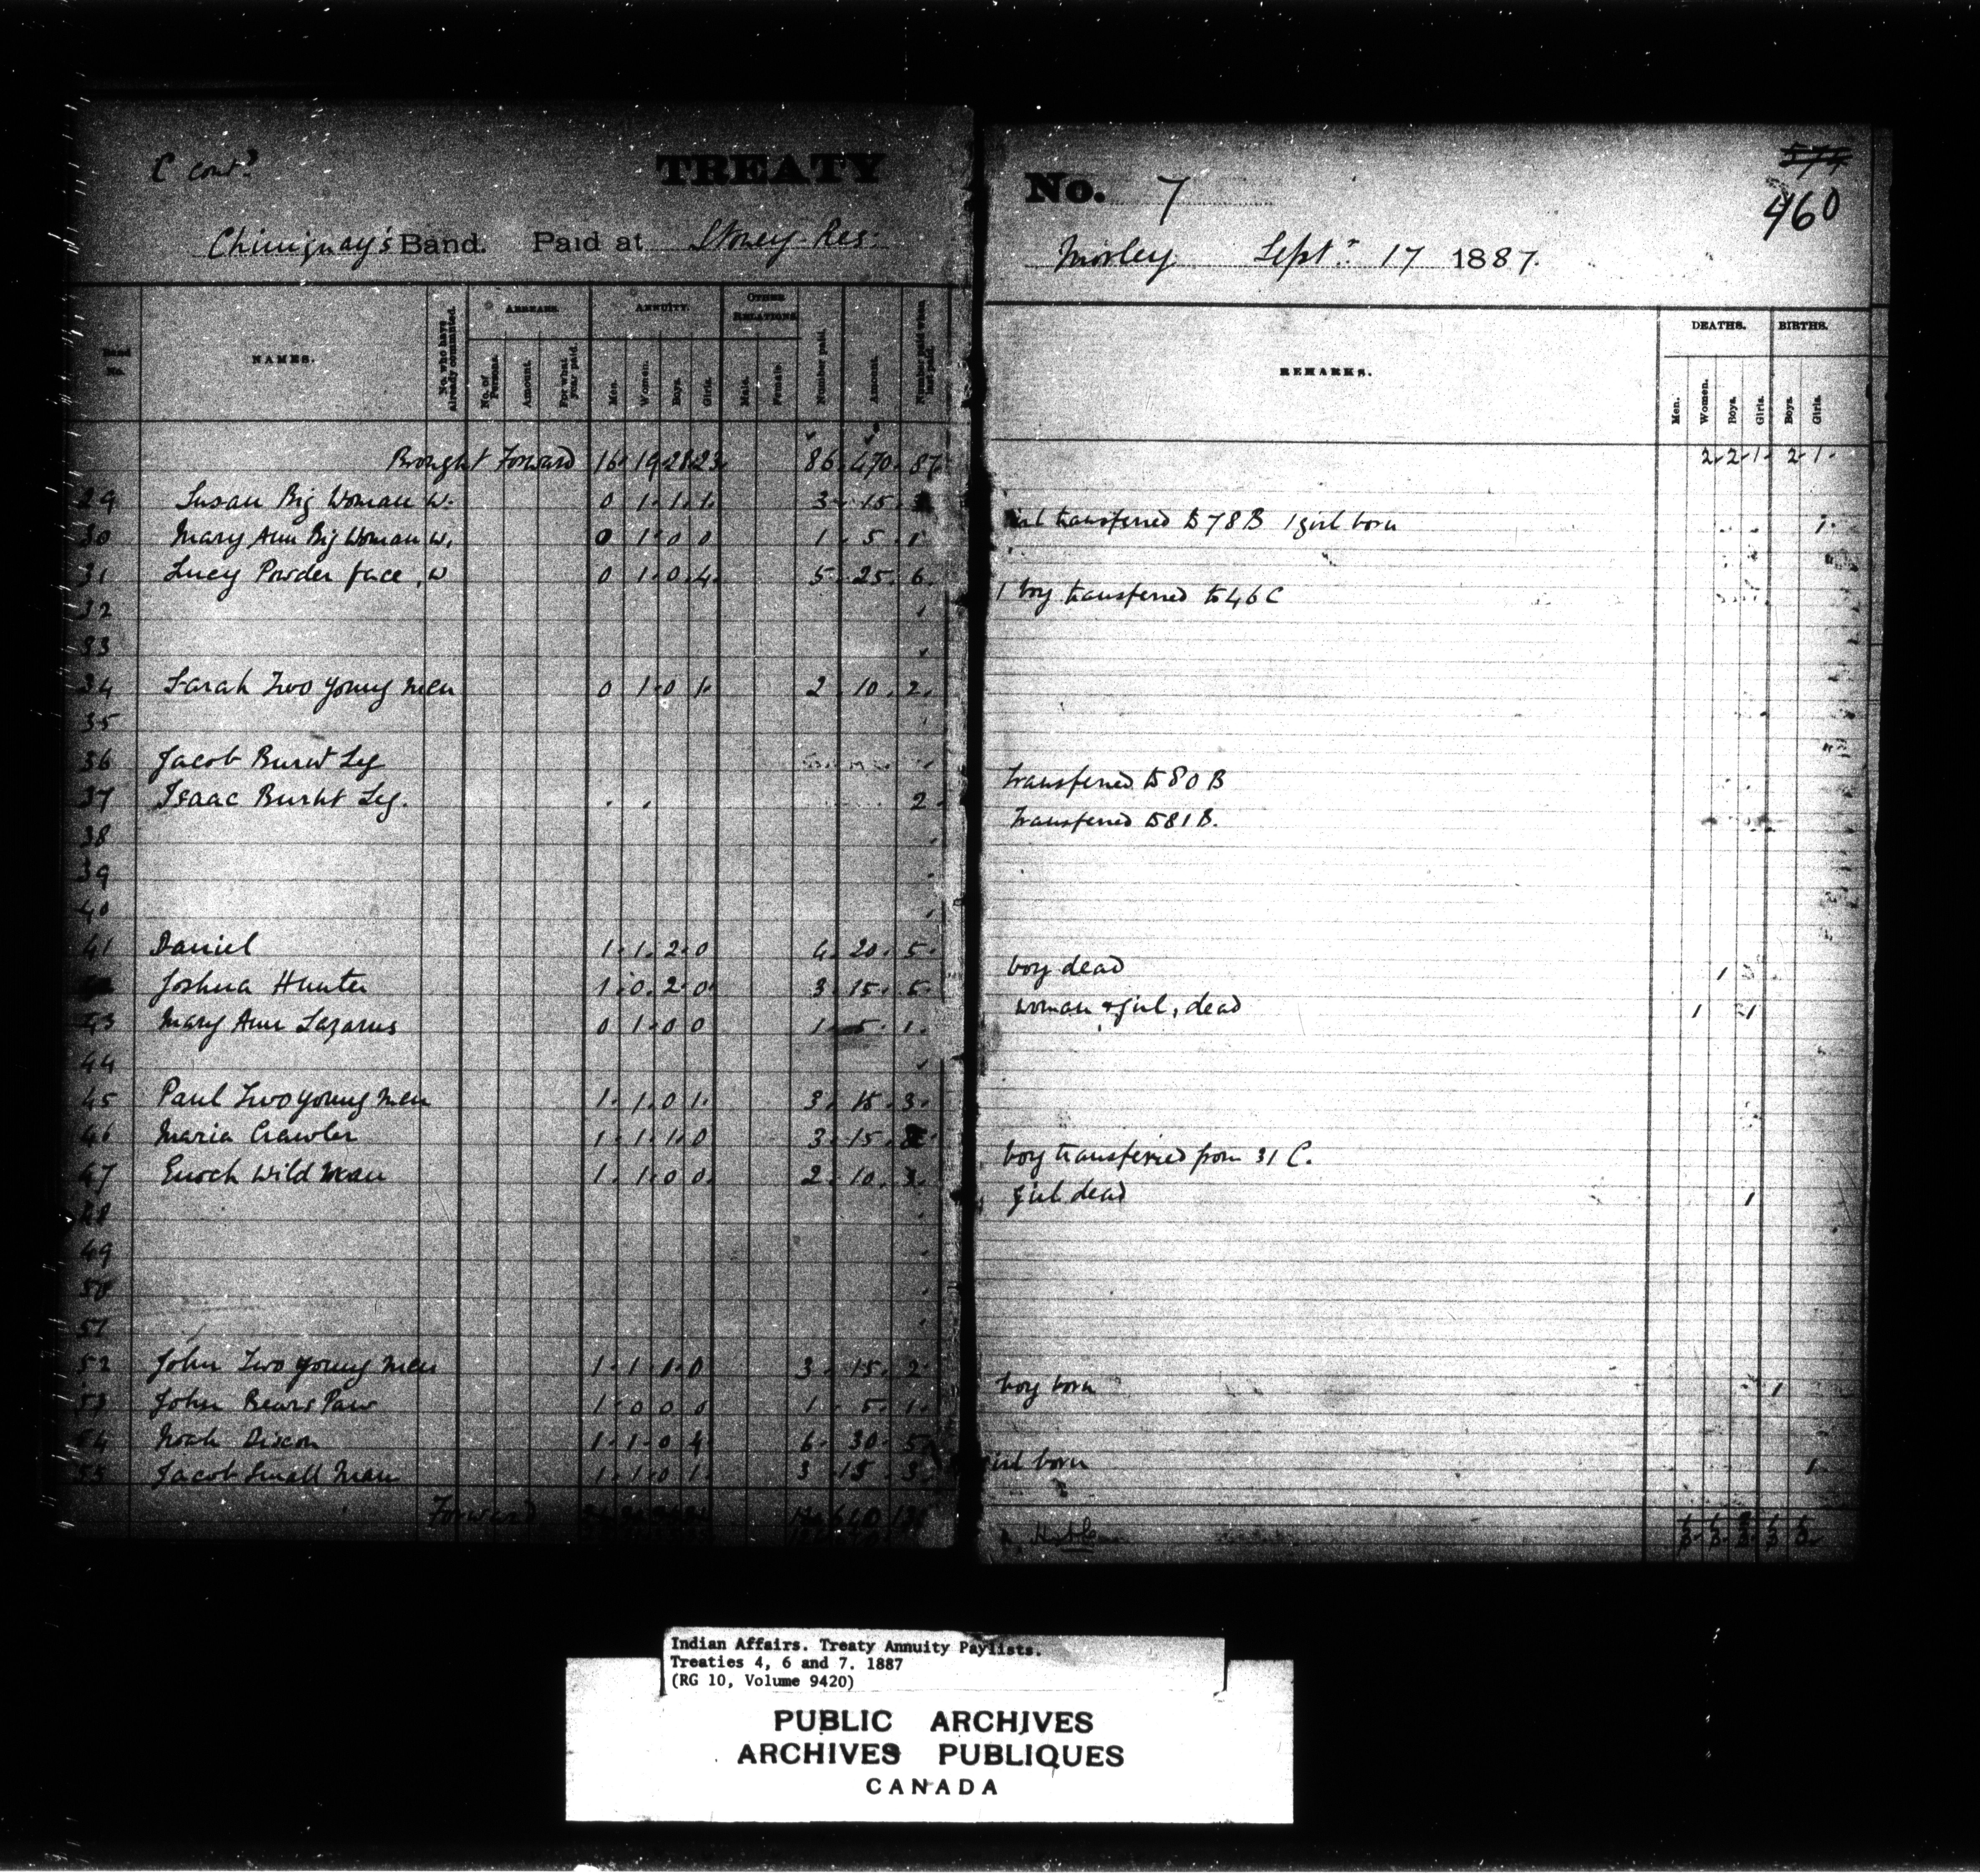 C cont?
TREATY
No. 7
574
460
Chiniquay's Band. Paid at Stoney Res:
Morley Sept. 17 1887.
Band No.
NAMES.
No. who have already commuted.
ARREARS.
No. of Persons.
Amount.
For what year paid.
ANNUITY.
Men.
Women.
Boys.
Girls.
OTHER RELATIONS
Male.
Female.
Number paid.
Amount.
Number paid when last paid.
REMARKS.
DEATHS.
Men.
Women.
Boys.
Girls.
BIRTHS.
Boys.
Girls.
Brought Forward 16 19 28 23 86 470 87 2 2 1 2 1
29 Susan Big Woman W. 0 1 1 1 3 15 girl transferred to 78 B 1 girl born 1
30 Mary Ann Big Woman W. 0 1 0 0 1 5 1
31 Lucy Powder face, W 0 1 0 4 5 25 6 1 boy transferred to 46 C
32
33
34 Sarah Two young men 0 1 0 1 2 10 2
35
36 Jacob Burnt Leg transferred to 80 B
37 Isaac Burnt Leg. 2 Transferred to 81 B.
38
39
40
41 Daniel 1 1 2 0 4 20 5 boy dead 1
Joshua Hunter 1 0 2 0 3 15 5 woman & girl, dead 1 1
43 Mary Ann Lazarus 0 1 0 0 1 5 1
44
45 Paul Two young men 1 1 0 1 3 15 3
46 Maria Crawler 1 1 1 0 3 15 boy transferred from 31 C.
47 Enoch Wild Man 1 1 0 0 2 10 3 girl dead 1
48
49
50
51
52 John Two young men 1 1 1 0 3 15 2 boy born 1
53 John Bears Paw 1 0 0 0 1 5 1
54 Noah Dixon 1 1 0 4 6 30 5 girl born 1
55 Jacob Small Man 1 1 0 1 3 15 3
Forward
Indian Affairs. Treaty Annuity Paylists.
Treaties 4, 6 and 7. 1887
(RG 10, Volume 9420)
PUBLIC ARCHIVES
ARCHIVES PUBLIQUES
CANADA